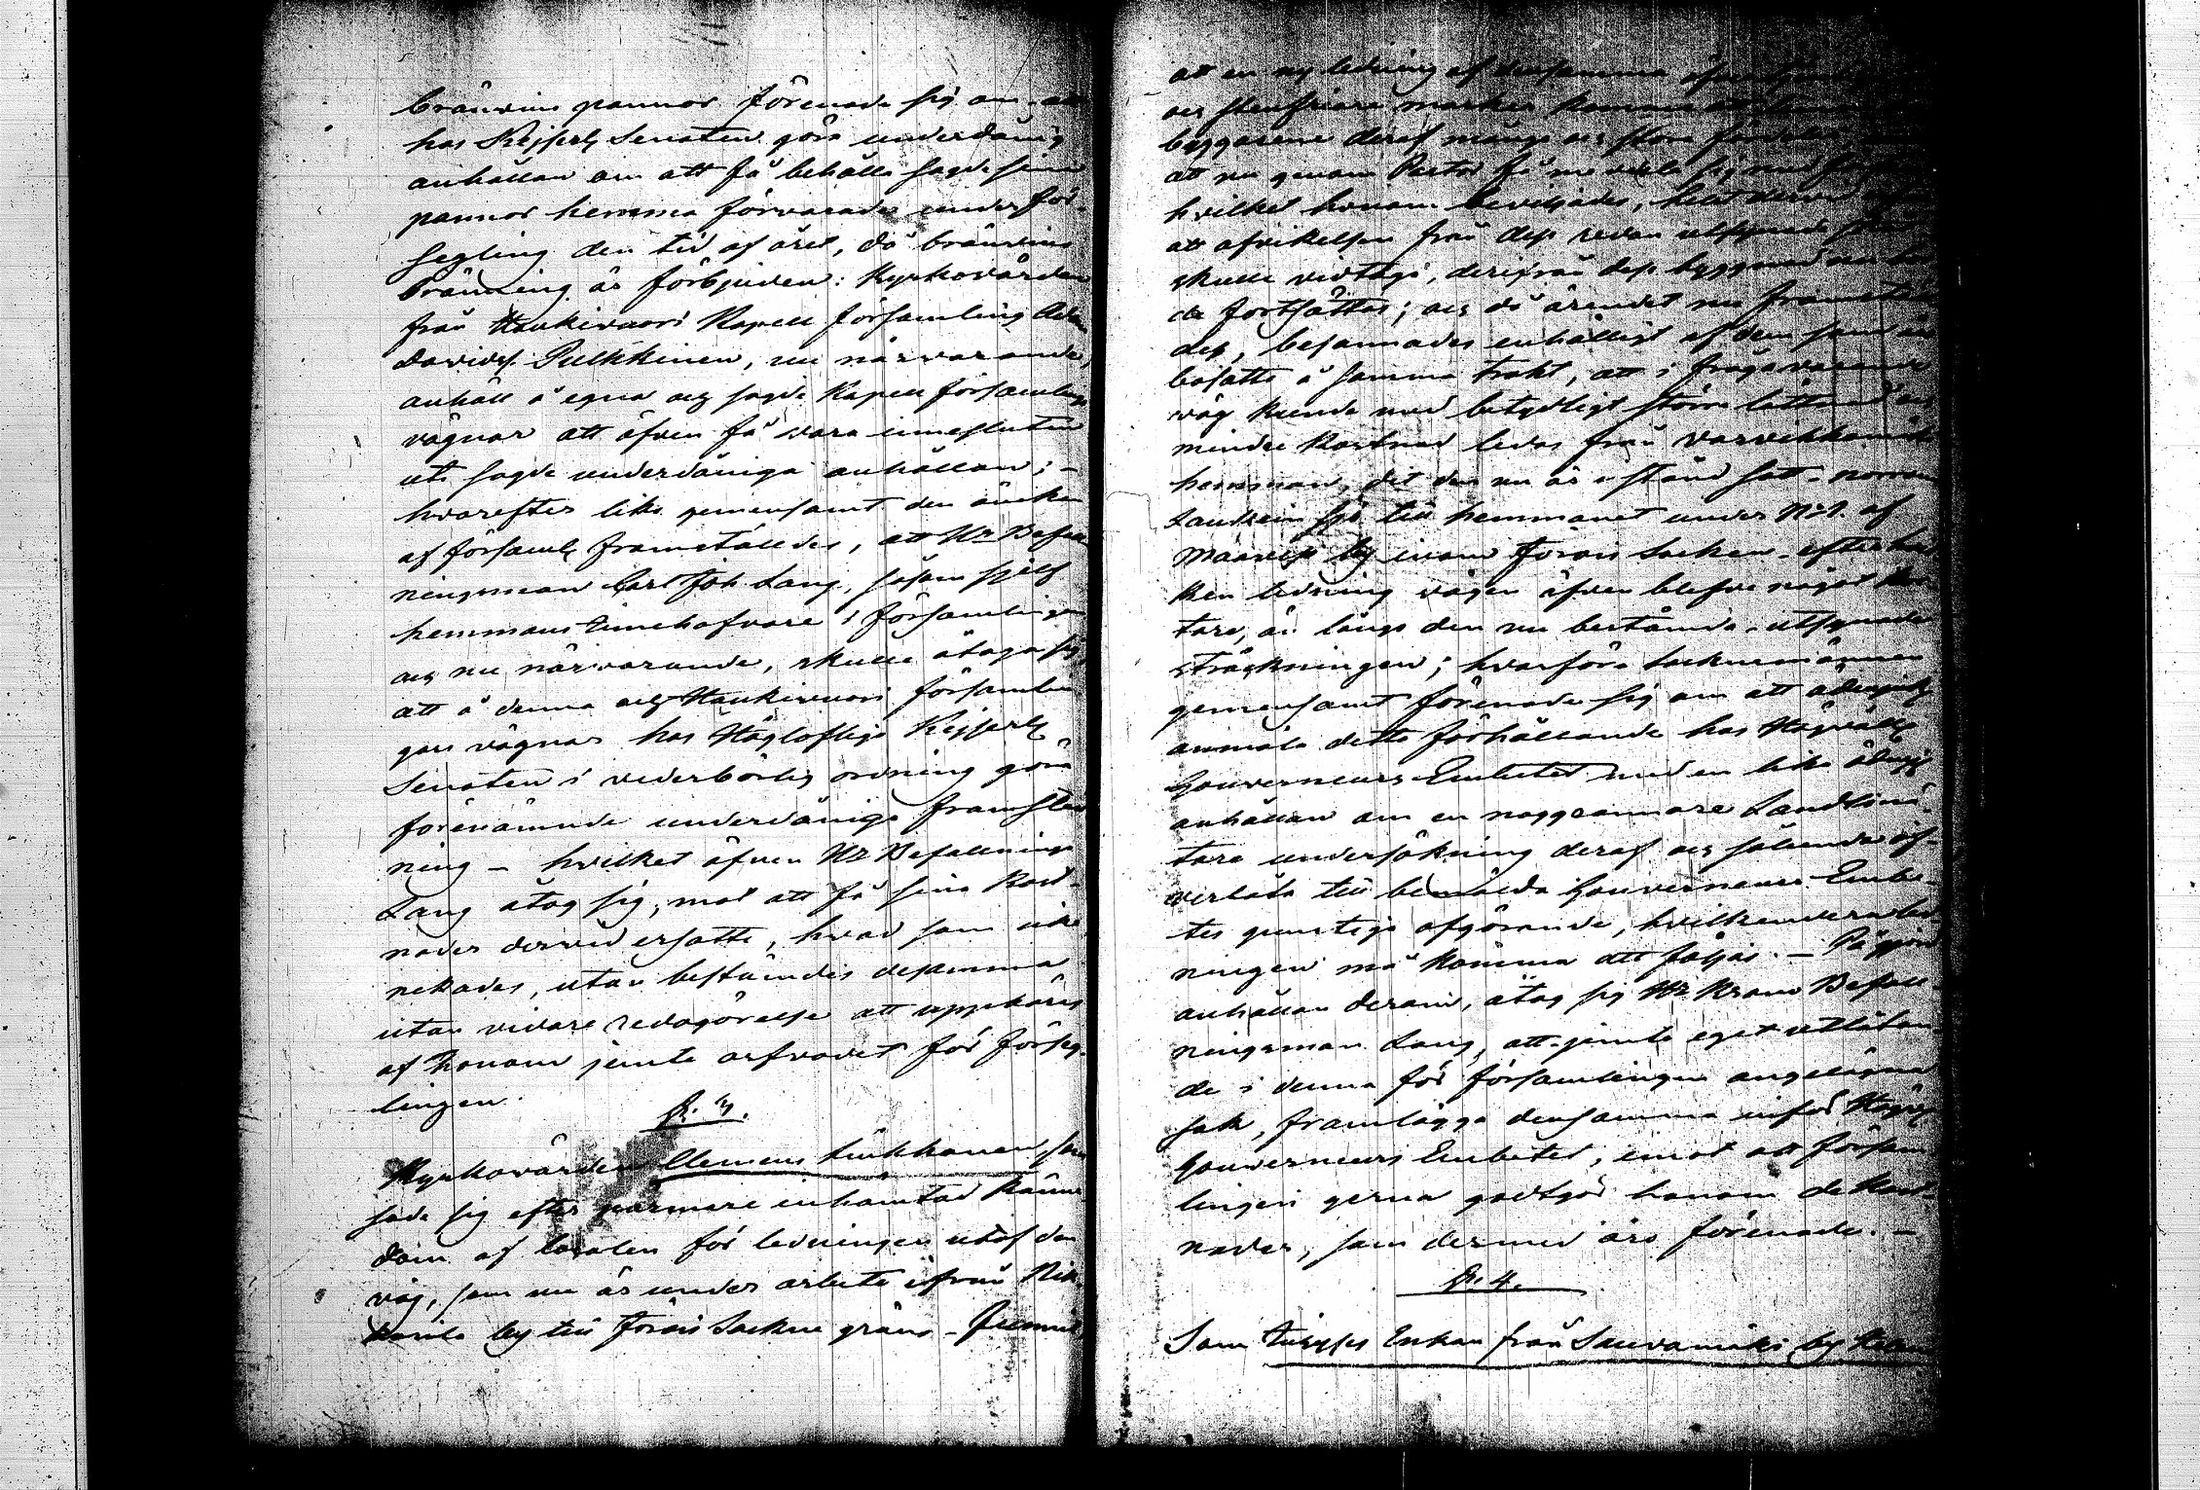 bränvins pannor förenade sig om att
hos Kejserl. Senaten göra underdånig
anhållan om att få behålla sagde sina
pannor hemma förvarade under för-
segling den tid af året, då bränvins
bränning är förbjuden: Kyrkovärden
från Haukivuori Kapell församling Adam
Davids. Pulkkinen, nu närvarande,
anhöll å egna och sagde Kapell församlings
vägnar att äfven få vara innesluten
uti sagde underdåniga anhållan; -
hvarefter lika gemensamt den önskan
af församl. framställdes, att Hr Befall
ningsman Carl Joh. Lang, såsom sjelf
hemmans innehafvare i församlingen
och nu närvarande, skulle åtaga sig
att å denna och Haukivuori församlin
gars vägnar hos Höglofliga Kejserl.
Senaten i vederbörlig ordning göra
förenämnde underdåniga framställ
ning - hvilket äfven Hr Befallnings
Lang åtog sig, mot att få sina kost-
nader dervid ersatte, hvad som icke
nekades, utan bestämdes desamma
utan vidare redogörelse att uppbäras
af honom jemte arfvodet för förseg-
lingen.
§. 3.
Kyrkovärden Clemens Liukkonen
sade sig efter närmare inhämtad känne
dom af localen för ledningen utaf den
väg, som nu är under arbete ifrån Nik-
karila by till Jorois Sockne gräns - funnit
att en ny ledning af densamma
och stenfriare marker komma att
byggarene deraf många och stora fördelar
att nu genom Pastor få meddela sig med
hvilket honom beviljades, helst dervid
att afvikelsen från dess redan utsynade
skulle vidtagas, derifrån dess byggnad
de fortsättas; och då ärendet nu framstäl
des, besannades enhälligt af dem som äro
bosatte å samma trakt, att i fråga varande
väg kunde med betydligt större lättnad och
mindre kostnad ledas från
hemman, dit den nu är i stånd satt - norrom
sjö till hemmanet under N:o 1. af
by inom Jorois Socken - efter hvil
ken ledning vägen äfven blefve något kor
tare, än längs den nu bestämda - utsynade
sträckningen; hvarföre Socknemännen
gemensamt förenade sig om att ödmjukl.
anmäla detta förhållande hos Högvälb.
Gouverneurs Embetet med en lika ödmjuk
anhållan om en noggrannare
undersökning deraf och sålunda öf-
verlåta till bemälda Gouverneurs Embe-
tes gunstiga afgörande, hvilkendera led
ningen må komma att följas. - På gjord
anhållan derom, åtog sig Hr Krono Befall-
ningsman Lang, att jemte eget utlåtan-
de i denna för församlingen angelägna
sak, framlägga densamma inför Högv.
Gouverneurs Embetet, emot att försam
lingen gerna godtgör honom de kost-
nader, som dermed äro förenade. -
§. 4.
Som Enkan från Sauvamäki by